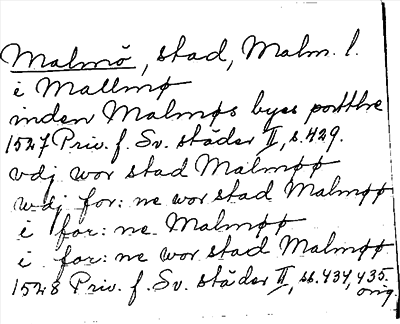 Malmö, stad, Malm. l.
i Mallmø
inden Malmøs byes portthe
1527 Priv. f. Sv. städer II, s. 429.
vdj wor stad Malmøø
wdj for: ne wor stad Malmøø
i for: ne. Malmøø
i for: ne wor stad Malmøø
1528 Priv. f. Sv. städer II, ss. 434, 435.
orig.